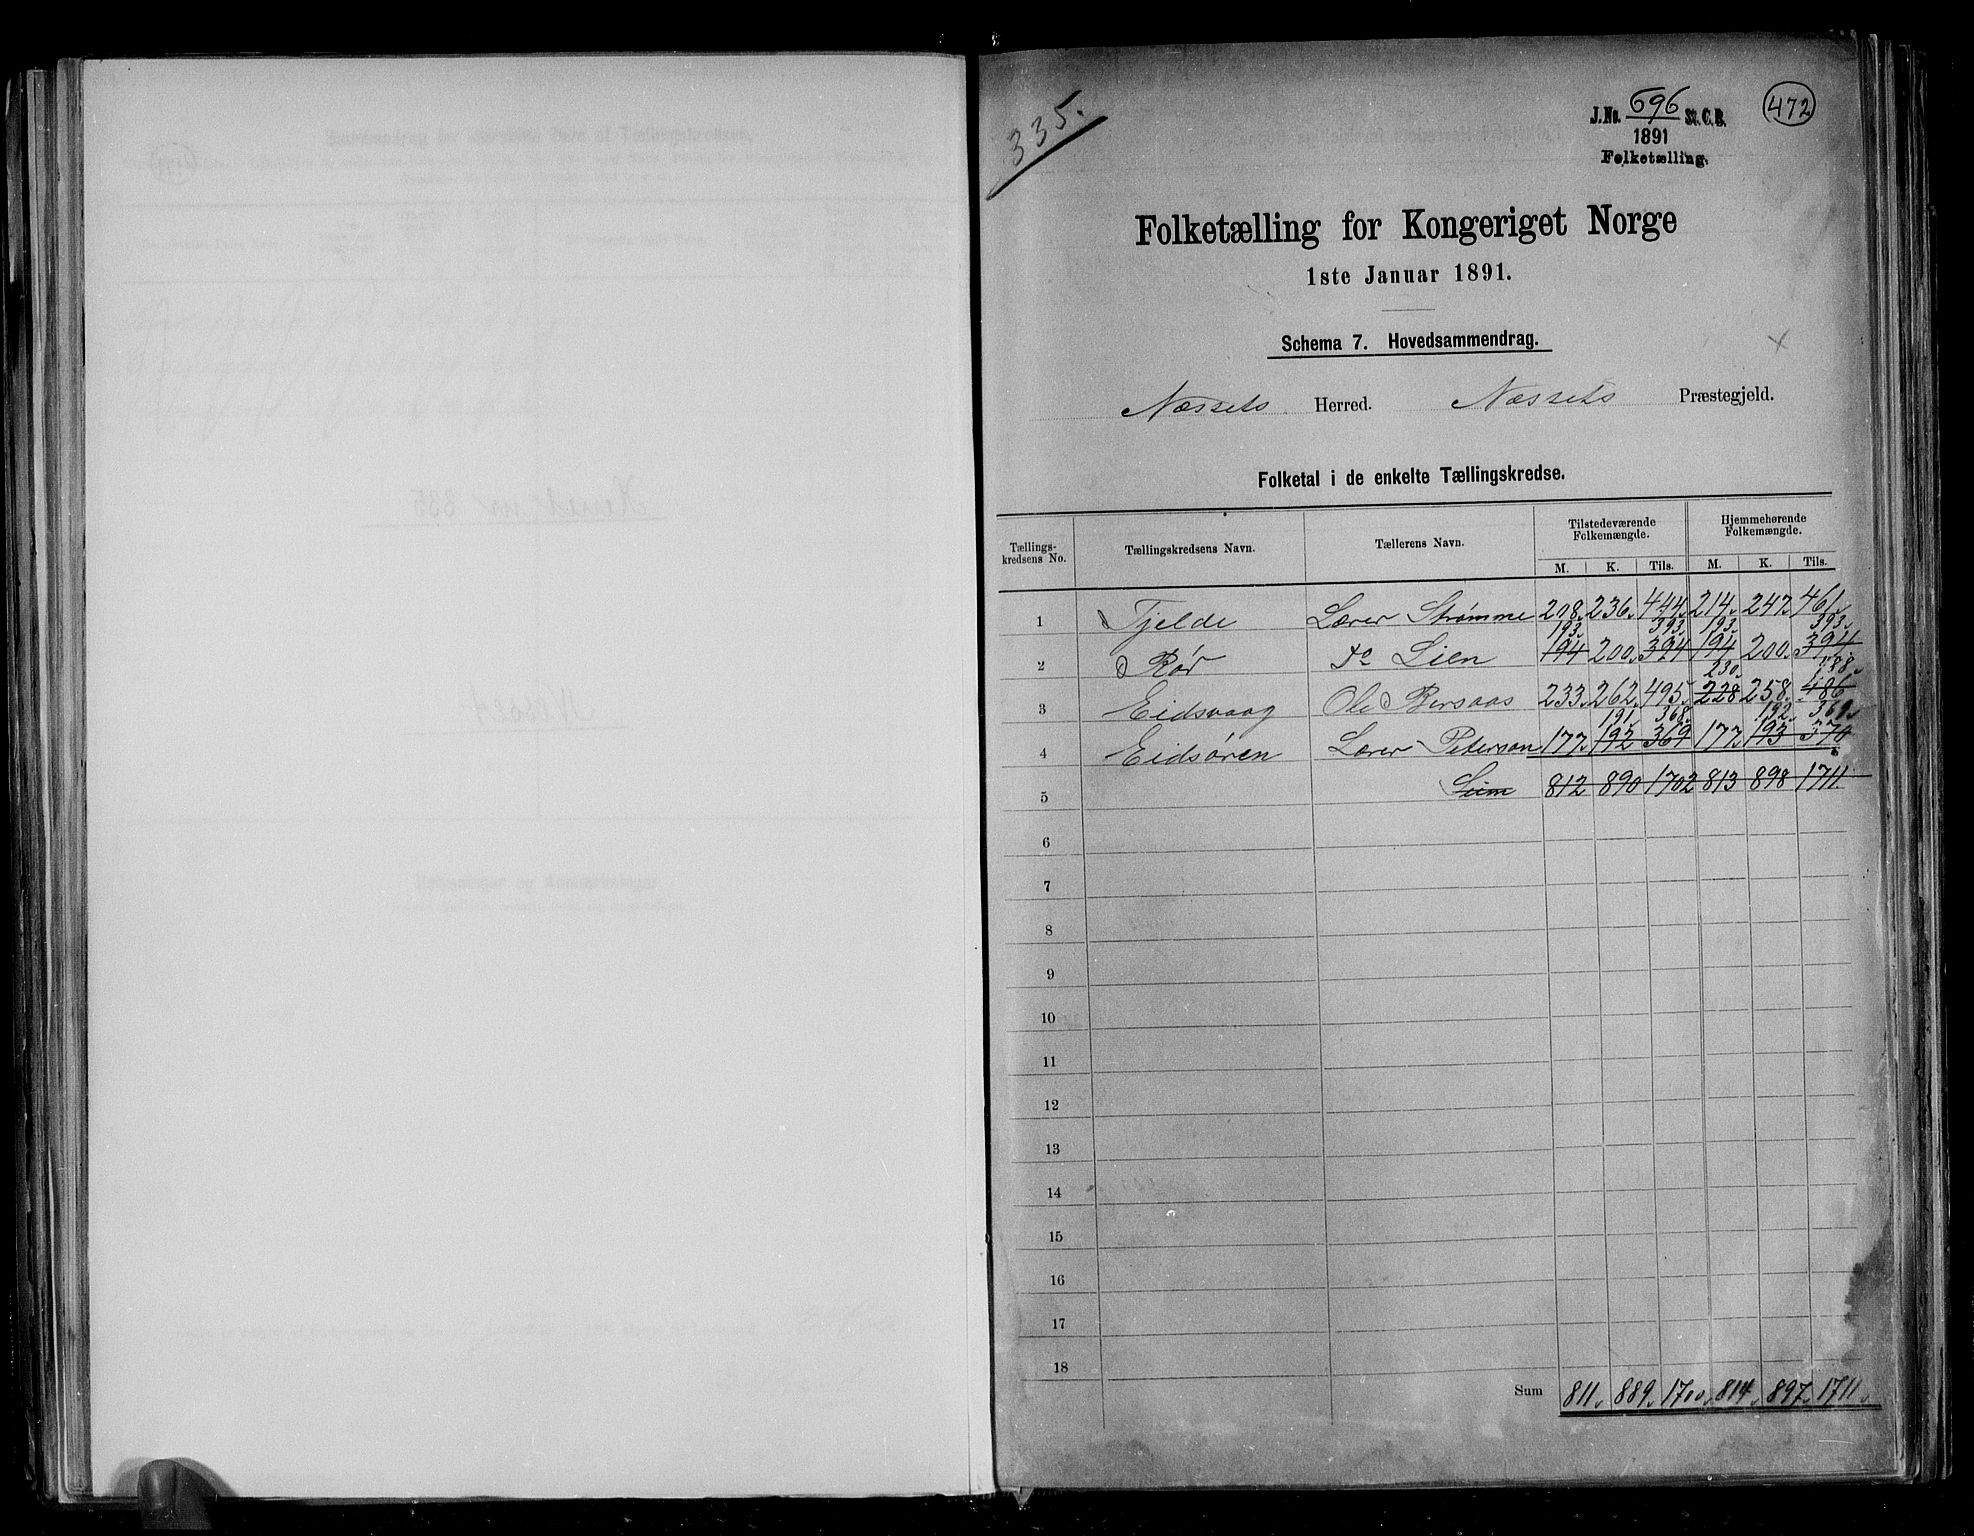 335.
J.No. 696 St.C.B.
1891
Folketælling.
472
Folketælling for Kongeriget Norge
1ste Januar 1891.
Schema 7. Hovedsammendrag.
Næssets Herred. Næssets Præstegjeld.
Folketal i de enkelte Tællingskredse.
Tællings-kredsens No. Tællingskredsens Navn. Tællerens Navn. Tilstedeværende Folkemængde. Hjemmehørende Folkemængde.
M. K. Tils. M. K. Tils.
1 Tjelde Lærer Strømme 208. 236. 444. 214. 247. 461.
193. 393. 193. 393.
2 Rør Do Lien 194 200. 394 194 200. 394.
230. 488.
3 Eidsvaag Ole Bersaas 233. 262. 495. 228 258. 486
191. 368. 192. 369.
4 Eidsøren Lærer Peterson 177. 192 369 177. 193 370
5 Sum 812 890 1702 813 898 1711.
6
7
8
9
10
11
12
13
14
15
16
17
18
Sum 811. 889. 1700. 814. 897. 1711.